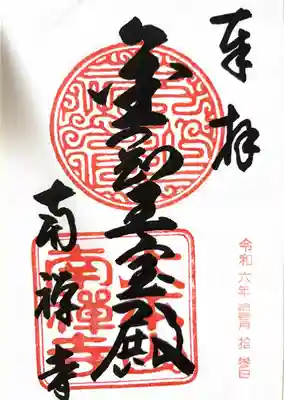 奉拝
令和六年 拾壹月 拾參日
金剛王宝殿
南禅寺
南禪寺